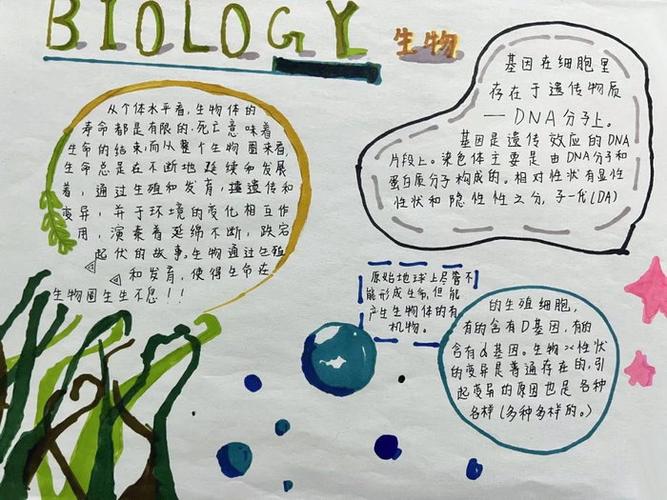 BIOLOGY
生物
从个体水平看,生物体的
寿命都是有限的.死亡意味着
生命的结束,而从整个生物圈来看,
生命总是在不断地延续和发展
着,通过生殖和发育,遗传和
变异,并于环境的变化相互作
用,演奏着延绵不断,跌宕
起伏的故事。生物通过生殖
和发育,使得生命在
生物圈生生不息!!
基因在细胞里
存在于遗传物质
——DNA分子上。
基因是遗传效应的DNA
片段上。染色体主要是由DNA分子和
蛋白质分子构成的。相对性状有显性
性状和隐性性之分,子一代(DA)
原始地球上尽管不
能形成生命,但能
产生生物体的有
机物。
的生殖细胞,
有的含有D基因,有的
含有d基因。生物性状
的变异是普遍存在的,引
起变异的原因也是各种
各样(多种多样的。)